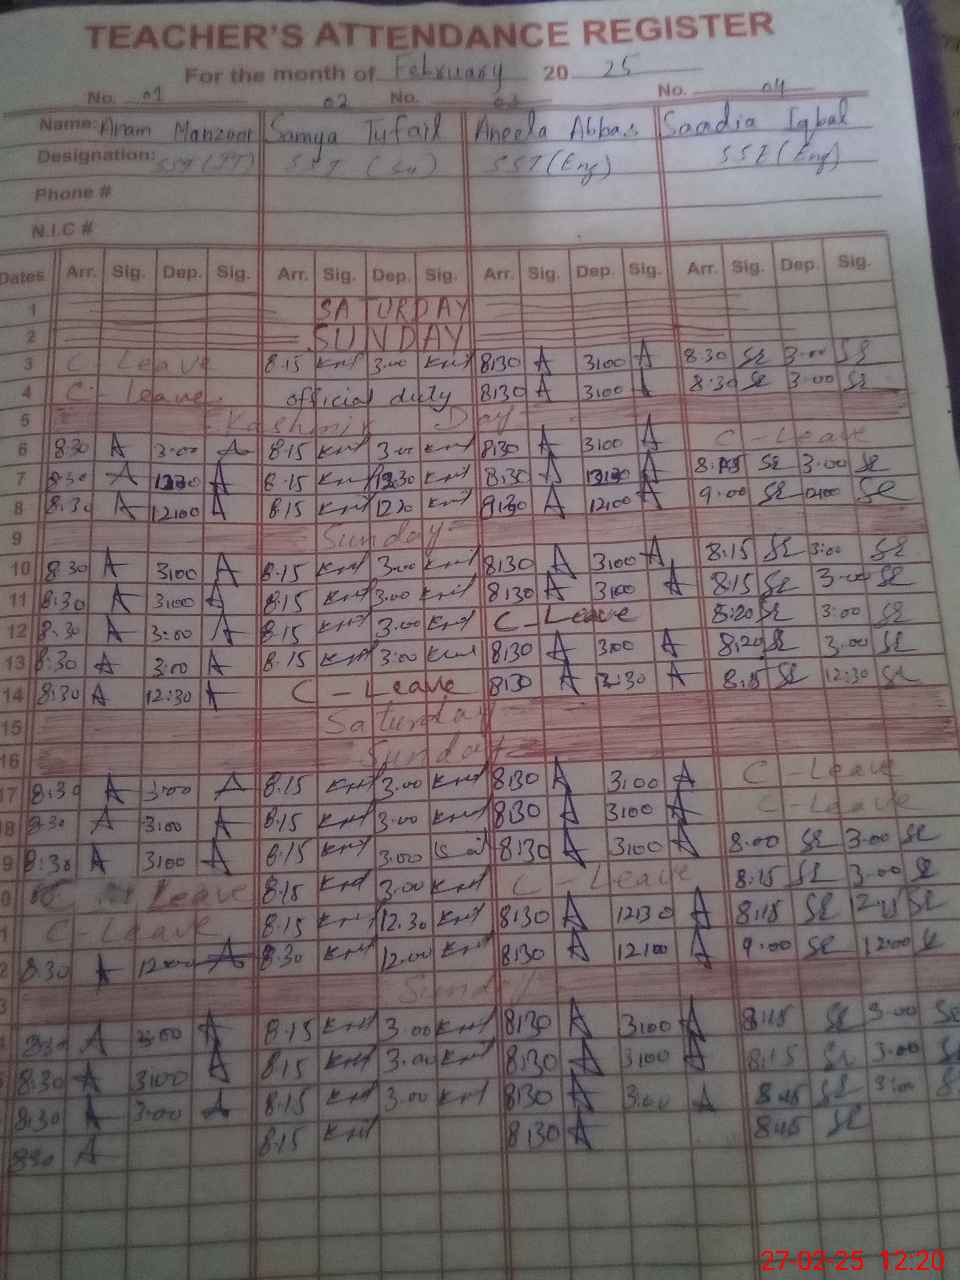 TEACHER'S ATTENDANCE REGISTER
For the month of February 20 25
No. 01 02 No. 03 No. 04
Name: Anam Manzoor Samya Tufail Aneela Abbas Saadia Iqbal
Designation: SST (IT) SST SST (Eng) SST (Eng)
Phone #
N.I.C #
Dates Arr. Sig. Dep. Sig. Arr. Sig. Dep. Sig. Arr. Sig. Dep. Sig. Arr. Sig. Dep. Sig.
1 SATURDAY
2 SUNDAY
3 C Leave 8.15 3.00 8:30 A 3:00 A 8:30 3:00
4 C- Leave official duty 8:30 A 3:00 A 8:30 3:00
5 Kashmir Day
6 8:30 A 3:00 A 8.15 3.00 8:30 A 3:00 A C-Leave
7 8:30 A 12:30 A 8.15 12.30 8:30 A 12:30 A 3:00
8 8:30 A 12:00 A 8.15 A 12:00 A 9:00 12:00
9 Sunday
10 8:30 A 3:00 A 8.15 3.00 8:30 A 3:00 A 8:15 3:00
11 8:30 A 3:00 A 8.15 3.00 8:30 A 3:00 A 8:15 3:00
12 8:30 A 3:00 A 8.15 3.00 C-Leave 8:20 3:00
13 8:30 A 3:00 A 8.15 3.00 8:30 A 3:00 A 8:20 3:00
14 8:30 A 12:30 A C-Leave 8:30 A 12:30 A 8:15 12:30
15 Saturday
16 Sunday
17 8:30 A 3:00 A 8.15 3.00 8:30 A 3:00 A C-Leave
8:30 A 3:00 A 8.15 3.00 8:30 A 3:00 A C-Leave
8:30 A 3:00 A 8.15 3.00 8:30 A 3:00 A 8:00 3:00
Leave 8.15 3.00 C-Leave 8:15 3:00
C-Leave 8.15 12.30 8:30 A 12:30 A 8:15
8:30 A 12:00 A 8:30 12:00 8:30 A 12:00 A 9:00 12:00
Sunday
8:30 A 3:00 A 8.15 3.00 8:30 A 3:00 A 3:00
8:30 A 3:00 A 8.15 3.00 8:30 A 3:00 A 8:15 3:00
8:30 A 3:00 A 8.15 3.00 8:30 A 3:00 A 8:45 3:00
8:30 A 8.15 8:30 A 8:45
27-02-25 12:20